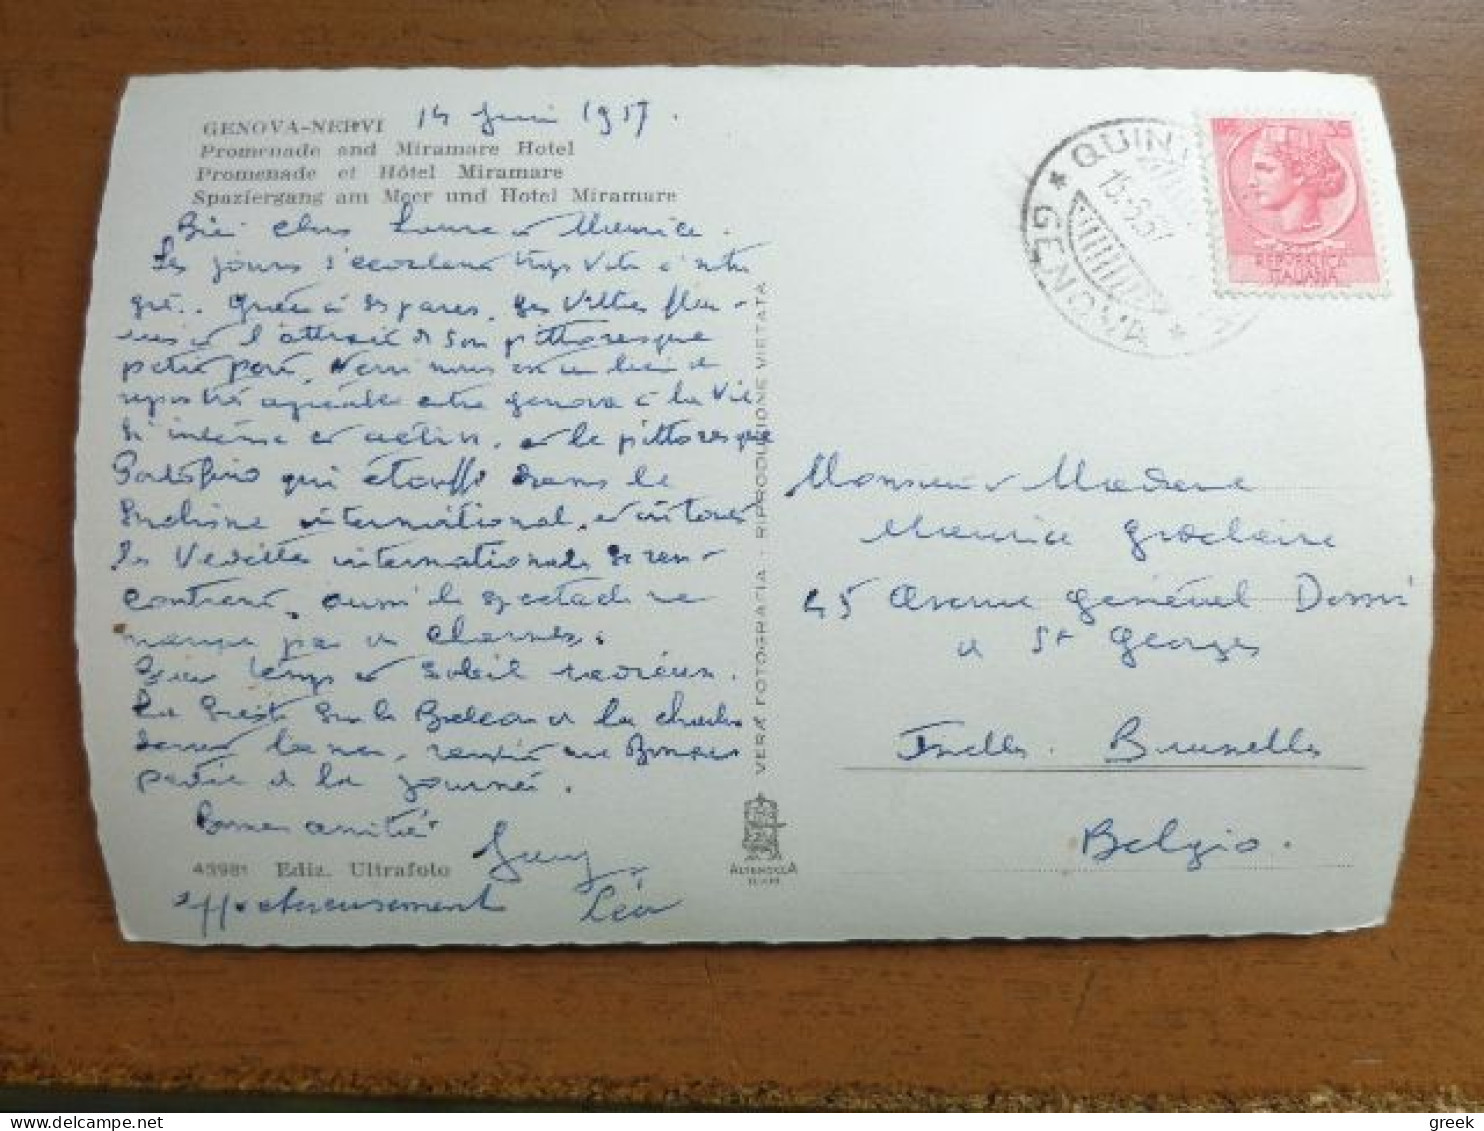 GENOVA-NERVI 14 Juin 1957.
Promenade and Miramare Hotel
Promenade et Hôtel Miramare
Spaziergang am Meer und Hotel Miramare
Bien chers Laure et Maurice.
Les jours s'écoulent trop vite à notre
gré. Grâce à ses parcs, ses villas fleu-
ries et l'attrait de son pittoresque
petit port, Nervi nous est un lieu de
agréable entre Genova à la vie
si intense et active, et le pittoresque
Portofino qui étouffe dans le
snobisme international, et où toutes
les Vedettes internationales se ren-
contrent, aussi le spectacle ne
manque pas de charmes.
Beau temps et soleil radieux.
La sieste sur le Balcon et la chaleur
devant la mer, une Bonne
partie de la journée.
Bonnes amitiés
45981 Ediz. Ultrafoto
affectueusement Léa
VERA FOTOGRAFIA - RIPRODUZIONE VIETATA
ALTEROCCA
TERNI
QUIN
GENOVA
15.6.57
35
REPVBBLICA
ITALIANA
Monsieur et Madame
Maurice Grosclaire
45 Avenue Général Dossin
de St Georges
Ixelles. Bruxelles
Belgio.
greek